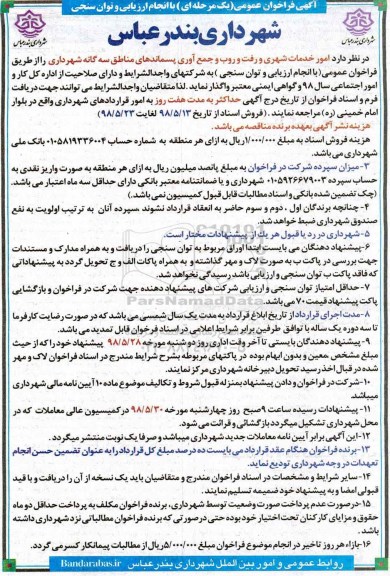 آگهی فراخوان عمومی (یک مرحله ای) با انجام ارزیابی و توان سنجی
شهرداری بندرعباس
در نظر دارد امور خدمات شهری و رفت و روب و جمع آوری پسماندهای مناطق سه گانه شهرداری را از طریق
فراخوان عمومی (با انجام ارزیابی و توان سنجی) به شرکتهای واجدالشرایط و دارای صلاحیت از اداره کل کار و
امور اجتماعی سال ۹۸ و گواهی ایمنی معتبر واگذار نماید. لذا متقاضیان واجدالشرایط می توانند جهت دریافت
فرم و اسناد فراخوان از تاریخ درج آگهی حداکثر به مدت هفت روز به امور قراردادهای شهرداری واقع در بلوار
امام خمینی (ره) مراجعه نمایند. (فروش اسناد از تاریخ ۹۸/۵/۱۳ لغایت ۹۸/۵/۲۳)
هزینه نشر آگهی بعهده برنده مناقصه می باشد.
هزینه فروش اسناد به مبلغ ۱/۰۰۰/۰۰۰ ریال به ازای هر منطقه به شماره حساب ۰۱۰۵۸۱۹۳۳۶۰۰۴ بانک ملی
شهرداری می باشد.
۳-میزان سپرده شرکت در فراخوان به مبلغ پانصد میلیون ریال به ازای هر منطقه به صورت واریز نقدی به
حساب سپرده ۰۱۰۵۹۲۶۶۷۹۰۰۳ شهرداری و یا ضمانتنامه معتبر بانکی دارای حداقل سه ماه اعتبار می باشد.
(چک تضمین شده بانکی و اسناد مطالبات قابل قبول کمیسیون نمی باشد.)
۴-چنانچه برندگان اول، دوم و سوم حاضر به انعقاد قرارداد نشوند سپرده آنان به ترتیب اولویت به نفع
صندوق شهرداری ضبط خواهد شد.
۵-شهرداری در رد یا قبول هر یک از پیشنهادات مختار است.
۶-پیشنهاد دهندگان می بایست ابتدا اوراق مربوط به توان سنجی را دریافت و به همراه مدارک و مستندات
جهت بررسی در پاکت ب به صورت لاک و مهر گذاشته و به همراه پاکات الف و ج تحویل گردد به پیشنهاداتی
که فاقد پاکت ب توان سنجی و ارزیابی باشد رسیدگی نخواهد شد.
۷-حداقل امتیاز توان سنجی و ارزیابی شرکت های پیشنهاد دهنده جهت شرکت در فراخوان و بازگشایی
پاکت پیشنهاد قیمت ۷۰ می باشد.
۸-مدت اجرای قرارداد از تاریخ ابلاغ قرارداد به مدت یک سال شمسی می باشد که در صورت رضایت کارفرما
تا سه دوره یک ساله با توافق طرفین برابر شرایط اعلامی در اسناد فراخوان قابل تمدید می باشد.
۹-پیشنهاد دهندگان بایستی تا آخر وقت اداری روز دوشنبه مورخه ۹۸/۵/۲۸ پیشنهاد خود را که از حیث
مبلغ مشخص، معین و بدون ابهام بوده در پاکتهای مربوطه بشرح شرایط مندرج در اسناد فراخوان لاک و مهر
شده در قبال اخذ رسید تحویل دبیرخانه شهرداری مرکز نمایند.
۱۰-شرکت در فراخوان و دادن پیشنهاد بمنزله قبول شروط و تکالیف موضوع ماده ۱۰ آیین نامه مالی شهرداری
میباشد.
۱۱-پیشنهادات رسیده ساعت ۹ صبح روز چهارشنبه مورخه ۹۸/۵/۳۰ در کمیسیون عالی معاملات که در
محل شهرداری تشکیل میگردد بازگشائی و قرائت می شود.
۱۲-این آگهی برابر آیین نامه معاملات جدید شهرداری میباشد و صرفا یک نوبت منتشر میگردد.
۱۳-برنده فراخوان هنگام عقد قرارداد می بایست ده درصد مبلغ کل قرارداد را به عنوان تضمین حسن انجام
تعهدات در وجه شهرداری تودیع نماید.
۱۴-سایر شرایط و مشخصات در اسناد فراخوان مندرج و متقاضیان باید یک نسخه از آن را دریافت و با قید
قبولی امضا و به پیشنهاد خود ضمیمه و تسلیم نمایند.
۱۵-در صورت عدم پرداخت صورت وضعیت توسط شهرداری، برنده فراخوان مکلف به پرداخت حداقل دو ماه
حقوق و مزایای کارکنان تحت اختیار خود بوده حتی در صورتی که برنده فراخوان مطالباتی نزد شهرداری داشته
باشد.
۱۶-بازاء هر روز تاخیر در انجام موضوع فراخوان مبلغ ۵/۰۰۰/۰۰۰ ریال از مطالبات پیمانکار کسر می گردد.
روابط عمومی و امور بین الملل شهرداری بندرعباس Bandarabas.ir
ParsNamadData